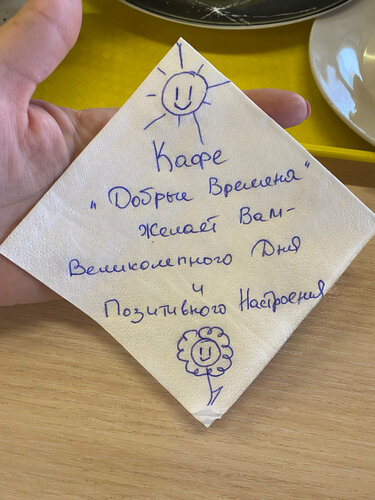 Кафе
"Добрые Времена"
Желает Вам-
Великолепного Дня
и
Позитивного Настроения